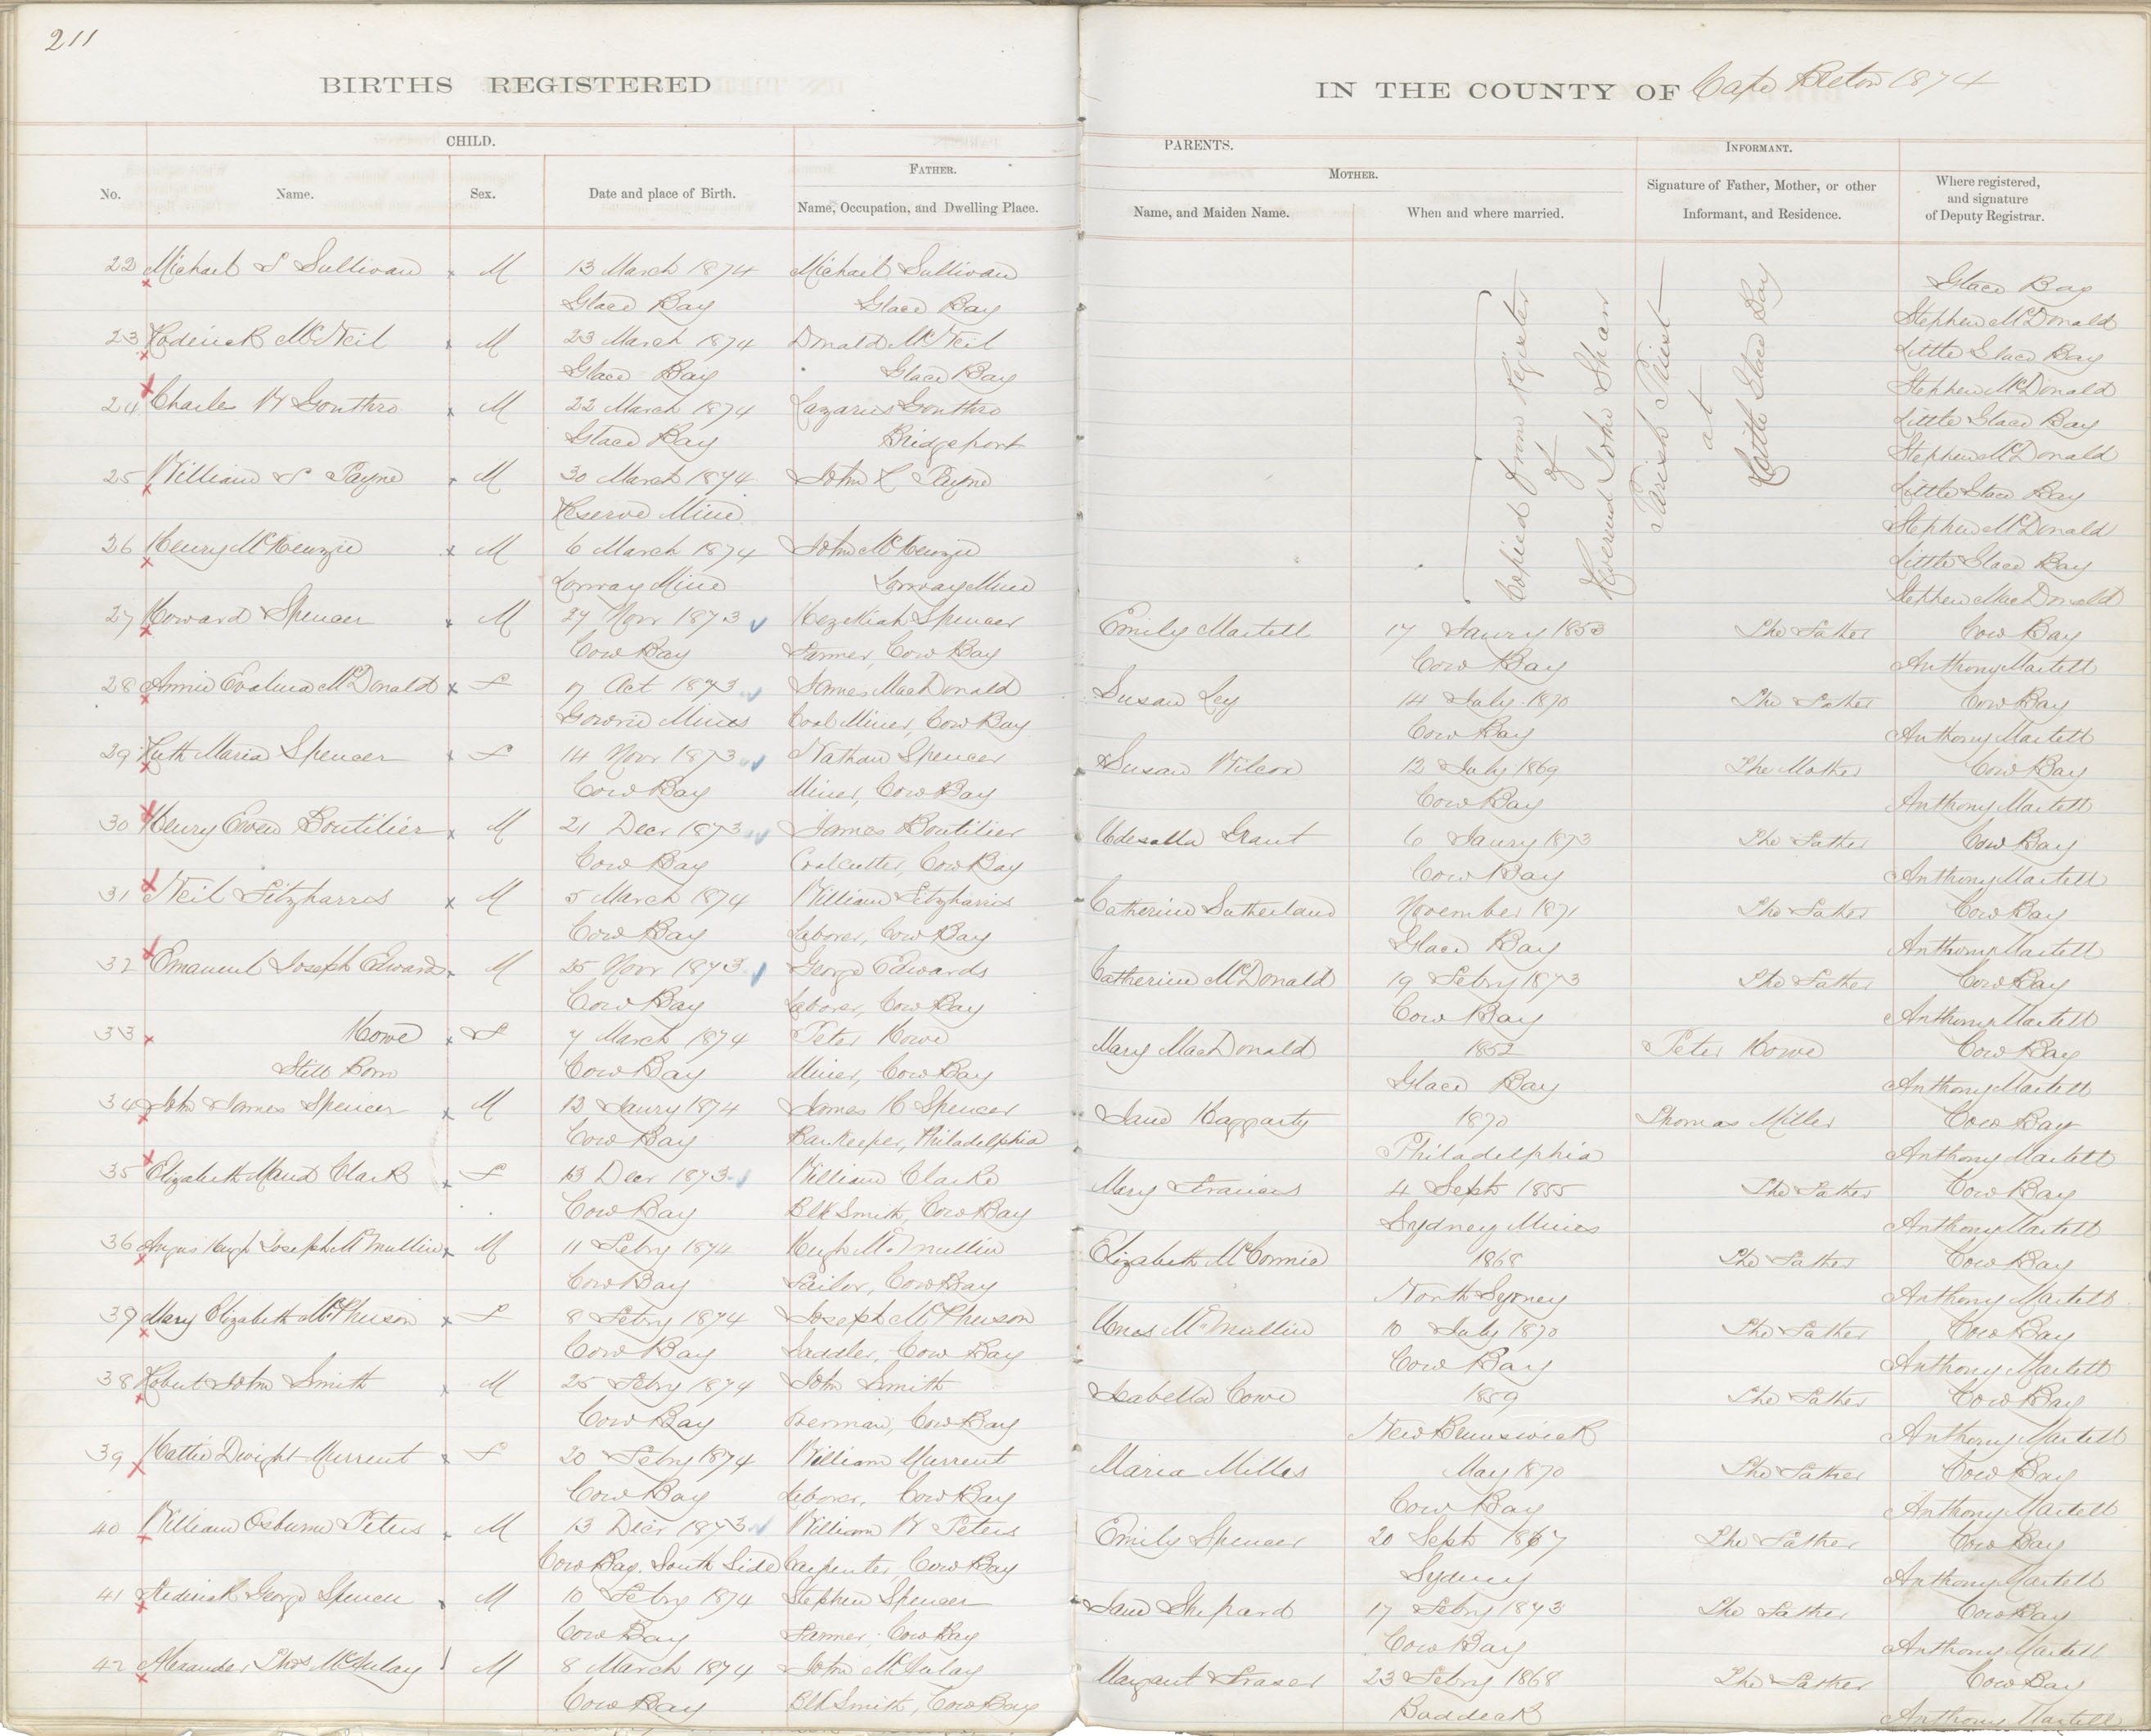 211
BIRTHS REGISTERED IN THE COUNTY OF Cape Breton 1874
CHILD. PARENTS. INFORMANT.
FATHER. MOTHER.
No. Name. Sex. Date and place of Birth. Name, Occupation, and Dwelling Place. Name, and Maiden Name. When and where married. Signature of Father, Mother, or other Informant, and Residence. Where registered, and signature of Deputy Registrar.
22 Michael S Sullivan M 13 March 1874 Michael Sullivan Glace Bay
Glace Bay Glace Bay Stephen McDonald
23 Roderick McNeil M 23 March 1874 Donald McNeil Little Glace Bay
Glace Bay Glace Bay Stephen McDonald
24 Charles W Gouthro M 22 March 1874 Lazarus Gouthro Little Glace Bay
Glace Bay Bridgeport Stephen McDonald
25 William S Payne M 30 March 1874 John C Payne Little Glace Bay
Reserve Mine Stephen McDonald
26 Henry McKenzie M 6 March 1874 John McKenzie Little Glace Bay
Lorway Mine Lorway Mine Stephen MacDonald
Copied from Register
of
Reverend John Shaw
Parish Priest
at
Little Glace Bay
27 Howard Spencer M 27 Novr 1873 Hezekiah Spencer Emily Martell 17 Janry 1853 The Father Cow Bay
Cow Bay Farmer, Cow Bay Cow Bay Anthony Martell
28 Annie Evalena McDonald F 7 Oct 1873 James MacDonald Susan Ley 14 July 1870 The Father Cow Bay
Gowrie Mines Coal Miner, Cow Bay Cow Bay Anthony Martell
29 Ruth Maria Spencer F 14 Novr 1873 Nathan Spencer Susan Wilcox 12 July 1869 The Mother Cow Bay
Cow Bay Miner, Cow Bay Cow Bay Anthony Martell
30 Henry Owen Boutilier M 21 Decr 1873 James Boutilier Udesalla Grant 6 Janry 1873 The Father Cow Bay
Cow Bay Coalcutter, Cow Bay Cow Bay Anthony Martell
31 Neil Fitzharris M 5 March 1874 William Fitzharris Catherine Sutherland November 1871 The Father Cow Bay
Cow Bay Laborer, Cow Bay Glace Bay Anthony Martell
32 Emanuel Joseph Edwards M 25 Novr 1873 George Edwards Catherine McDonald 19 Febry 1873 The Father Cow Bay
Cow Bay Laborer, Cow Bay Cow Bay Anthony Martell
33 Howe F 7 March 1874 Peter Howe Mary MacDonald 1852 Peter Howe Cow Bay
Still Born Cow Bay Miner, Cow Bay Glace Bay Anthony Martell
34 John James Spencer M 12 Janry 1874 James H Spencer Jane Haggarty 1870 Thomas Miller Cow Bay
Cow Bay Barkeeper, Philadelphia Philadelphia Anthony Martell
35 Elizabeth Maud Clark F 13 Decr 1873 William Clarke Mary Francis 4 Sept 1855 The Father Cow Bay
Cow Bay Blk Smith, Cow Bay Sydney Mines Anthony Martell
36 Angus Hugh Joseph McMullin M 11 Febry 1874 Hugh McMullin Elizabeth McCormic 1868 The Father Cow Bay
Cow Bay Tailor, Cow Bay North Sydney Anthony Martell
37 Mary Elizabeth McPherson F 8 Febry 1874 Joseph McPherson McMullin 10 July 1870 The Father Cow Bay
Cow Bay Saddler, Cow Bay Cow Bay Anthony Martell
38 Robert John Smith M 25 Febry 1874 John Smith Isabella Cowe 1859 The Father Cow Bay
Cow Bay Cow Bay New Brunswick Anthony Martell
39 Hattie Dwight Murrent F 20 Febry 1874 William Murrent Maria Milles May 1870 The Father Cow Bay
Cow Bay Laborer, Cow Bay Cow Bay Anthony Martell
40 William Osburne Peters M 13 Decr 1873 William W Peters Emily Spencer 20 Sept 1867 The Father Cow Bay
Cow Bay. South Side Carpenter, Cow Bay Sydney Anthony Martell
41 Frederick George Spencer M 10 Febry 1874 Stephen Spencer Jane Shepard 17 Febry 1873 The Father Cow Bay
Cow Bay Farmer, Cow Bay Cow Bay Anthony Martell
42 Alexander Thos McAulay M 8 March 1874 John McAulay Margaret Fraser 23 Febry 1868 The Father Cow Bay
Cow Bay Blk Smith, Cow Bay Baddeck Anthony Martell